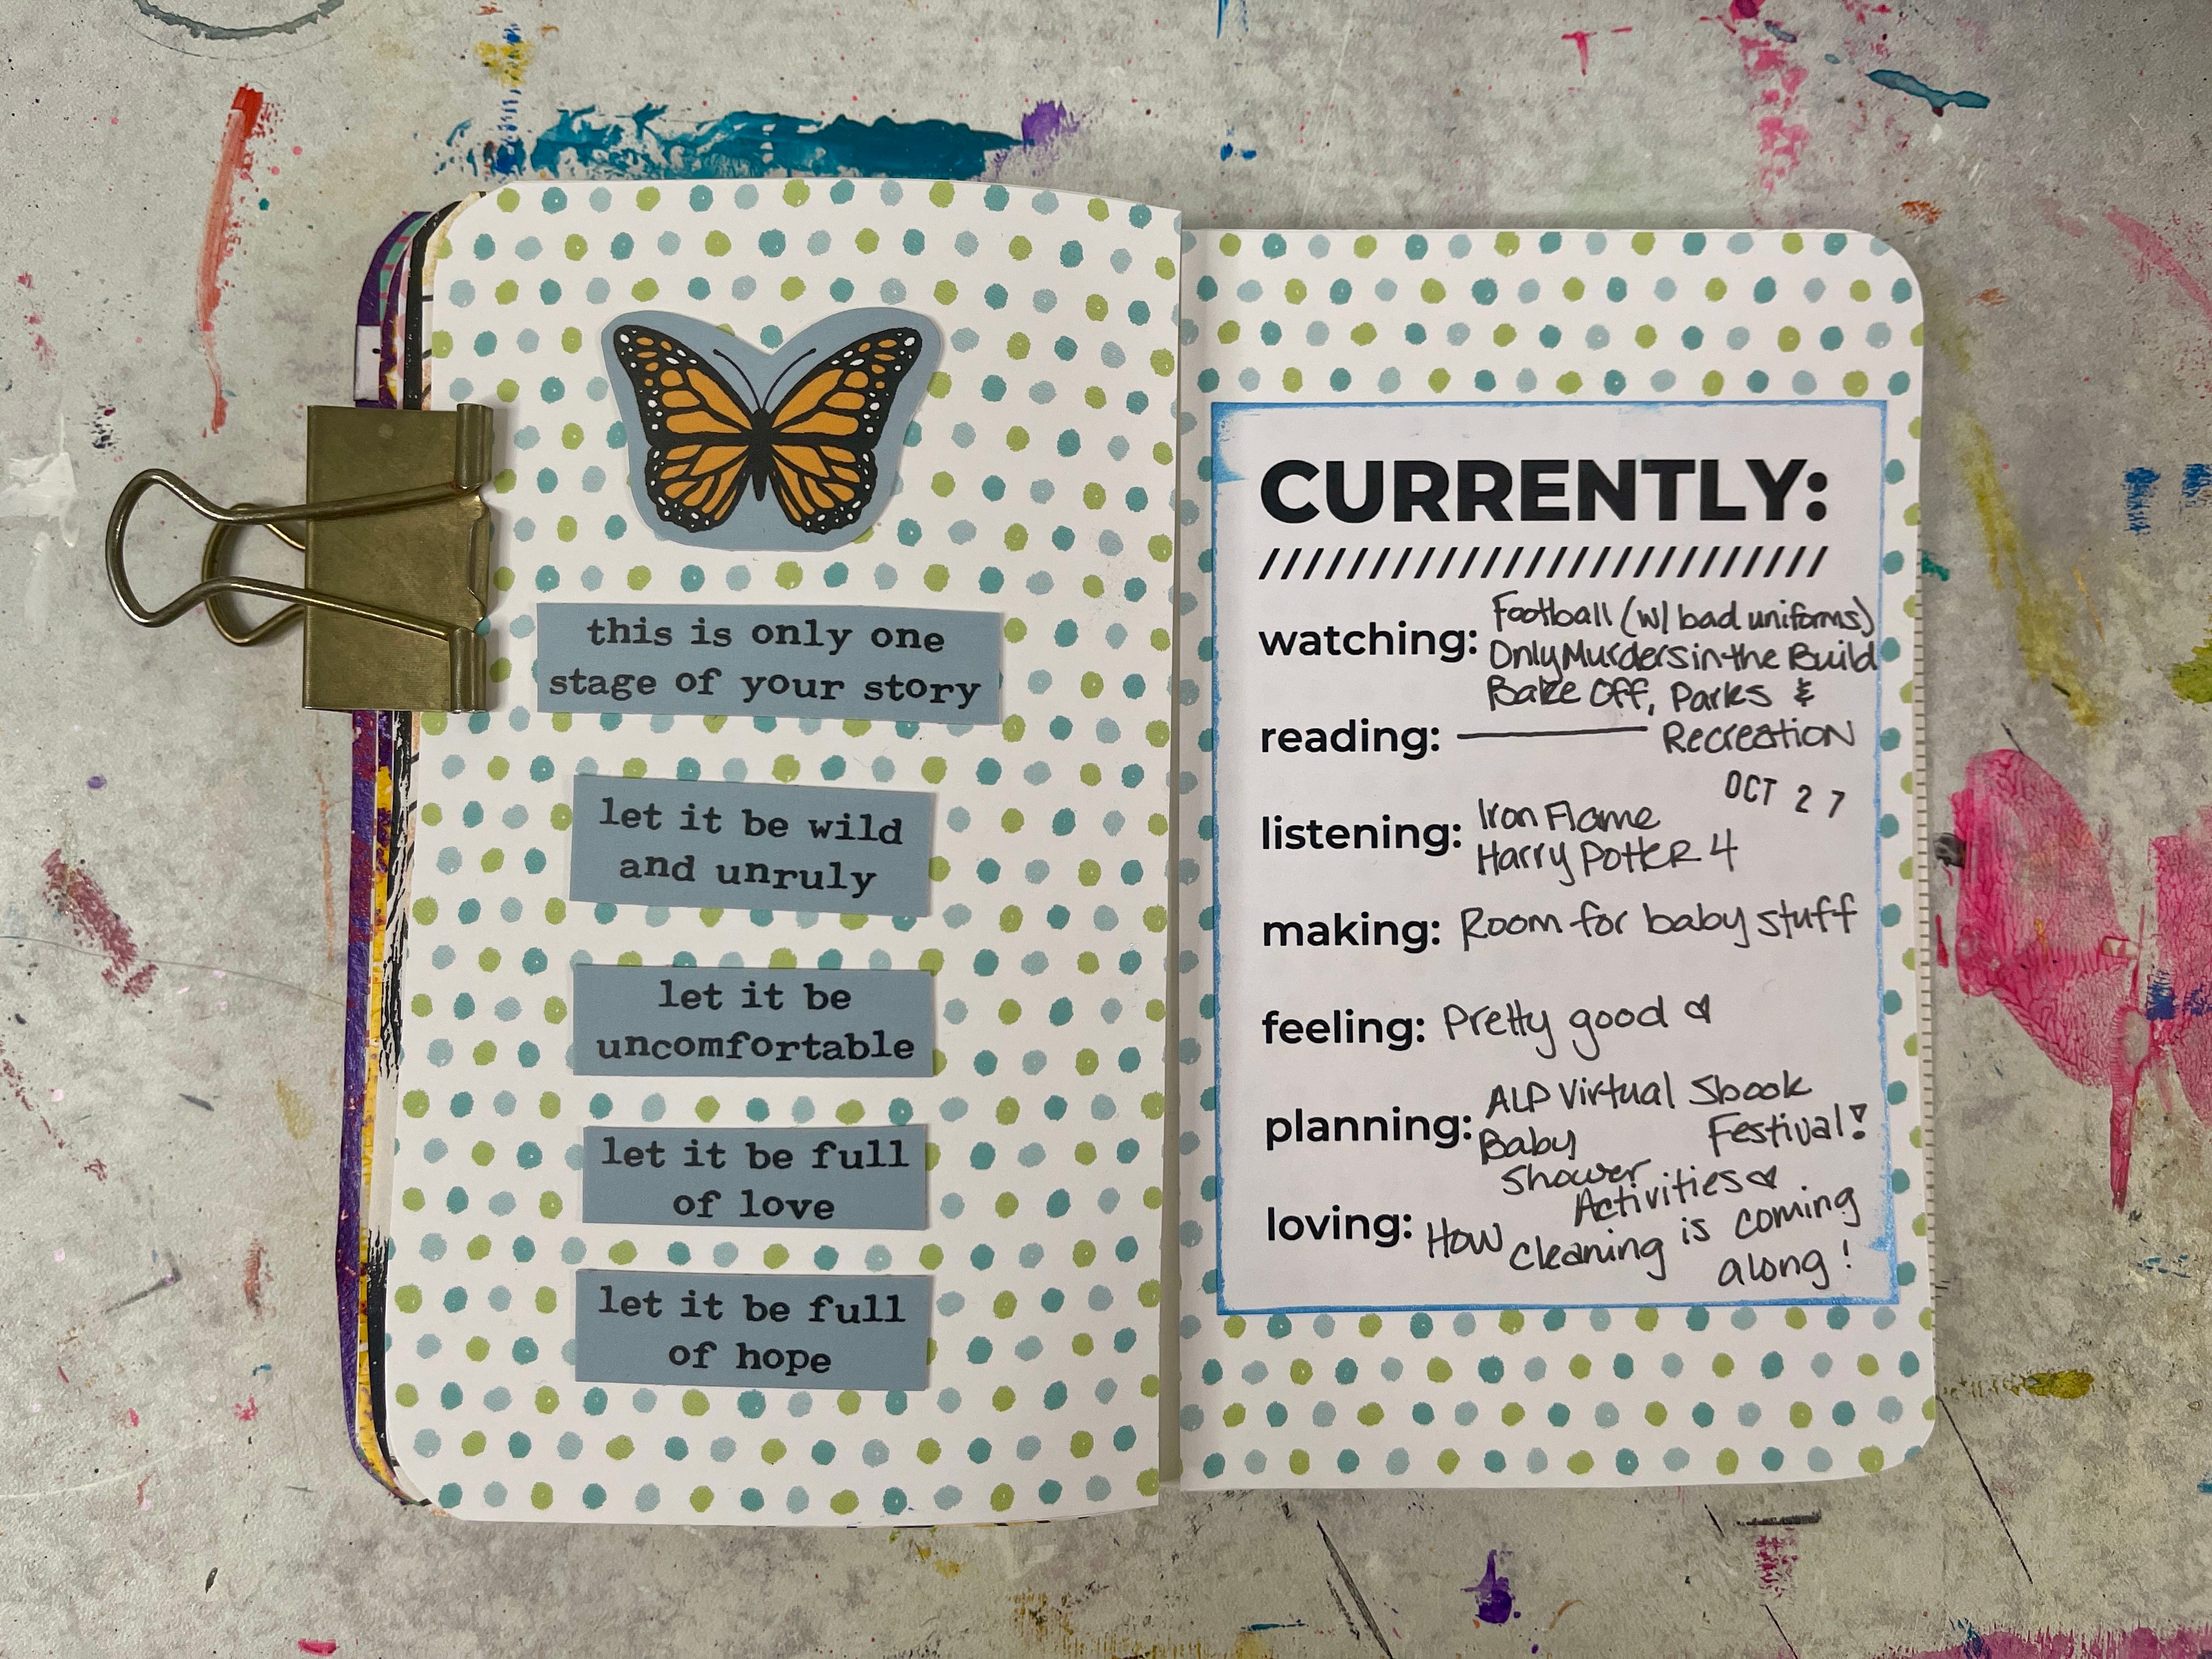 this is only one
stage of your story
let it be wild
and unruly
let it be
uncomfortable
let it be full
of love
let it be full
of hope
CURRENTLY:
////////////////////////////
watching: Football (w/ bad uniforms)
Only Murders in the Build
Bake Off, Parks &
reading: Recreation
OCT 27
listening: Iron Flame
Harry Potter 4
making: Room for baby stuff
feeling: Pretty good
planning: ALP Virtual Sbook
Festival!
Baby
Shower
Activities
loving: How cleaning is coming
along!